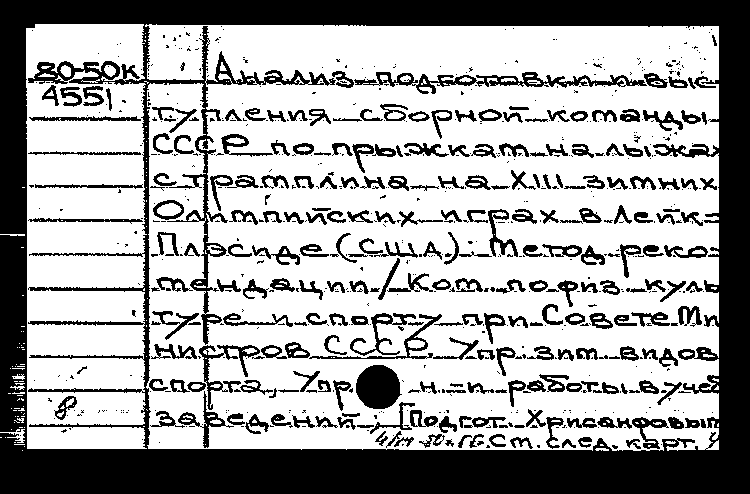 80-50к
4551
Анализ подготовки и выс-
тупления сборной команды
СССР по прыжкам на лыжах
с трамплина на XIII зимних
Олимпийских играх в Лейк-
Плэсиде (США): Метод. реко-
мендации / Ком. по физ. куль
туре и спорту при Совете Ми
нистров СССР. Упр. зим. видов
спорта, Упр. н.-и работы в учеб
заведений; [Подгот. Хрисанфовым
8
См. след. карт.